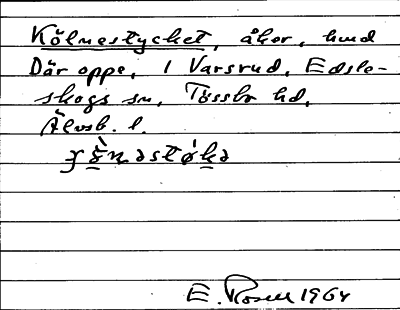 Kölnestycket, åker, hmd
Där oppe, i Varsrud, Edsle-
skogs sn, Tössbo hd,
Älvsb. l.
E. Rosell 1964